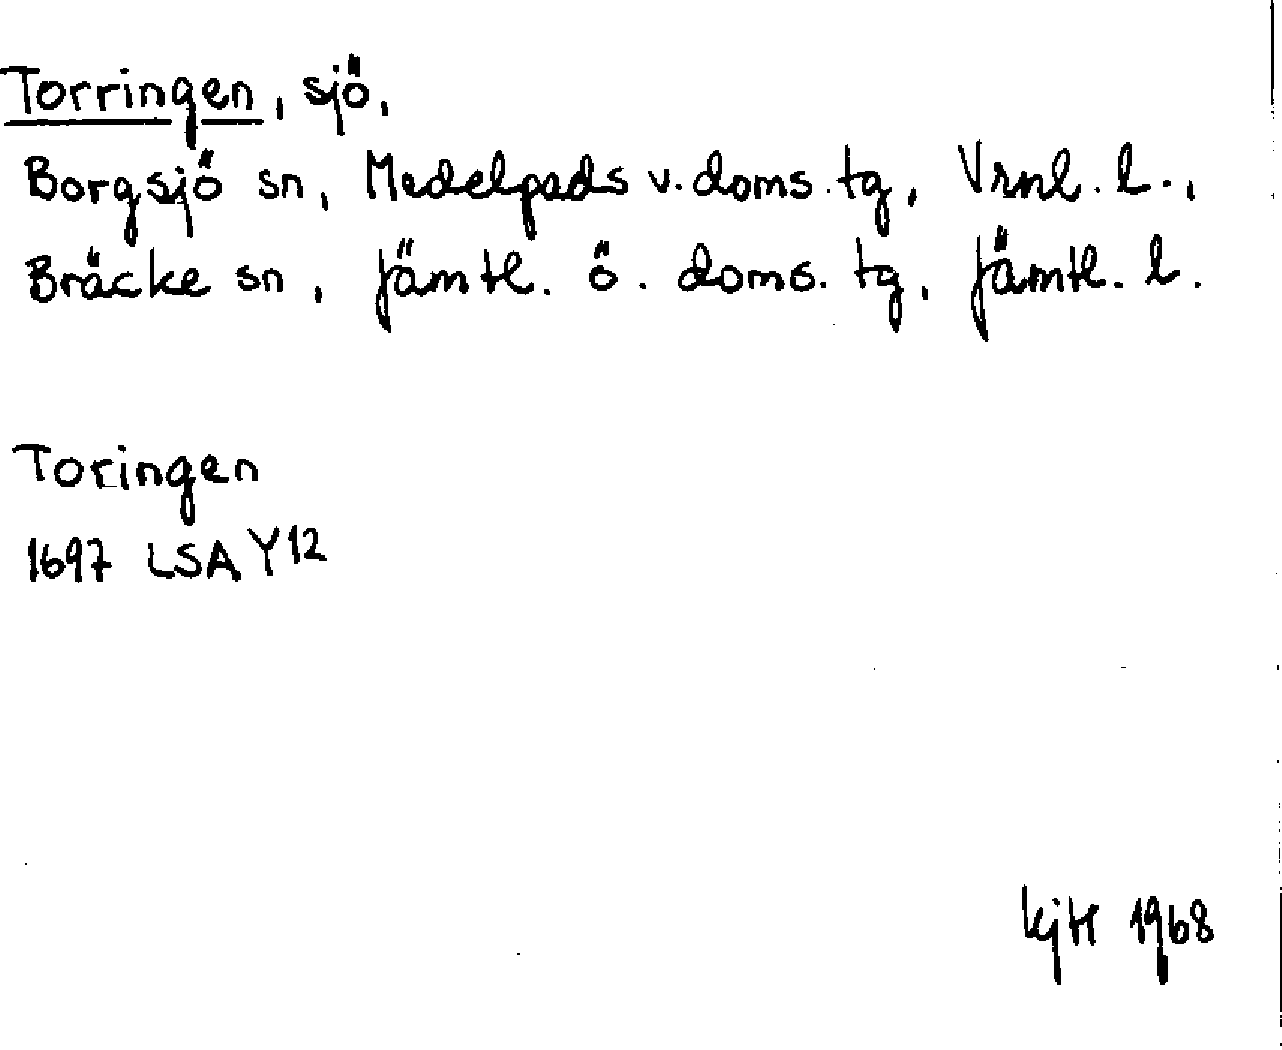 Torringen, sjö,
Borgsjö sn, Medelpads v. doms. tg, Vrnl. l.,
Bräcke sn, Jämtl. ö. doms. tg, Jämtl. l.
Toringen
1697 LSA Y12
KjH 1968